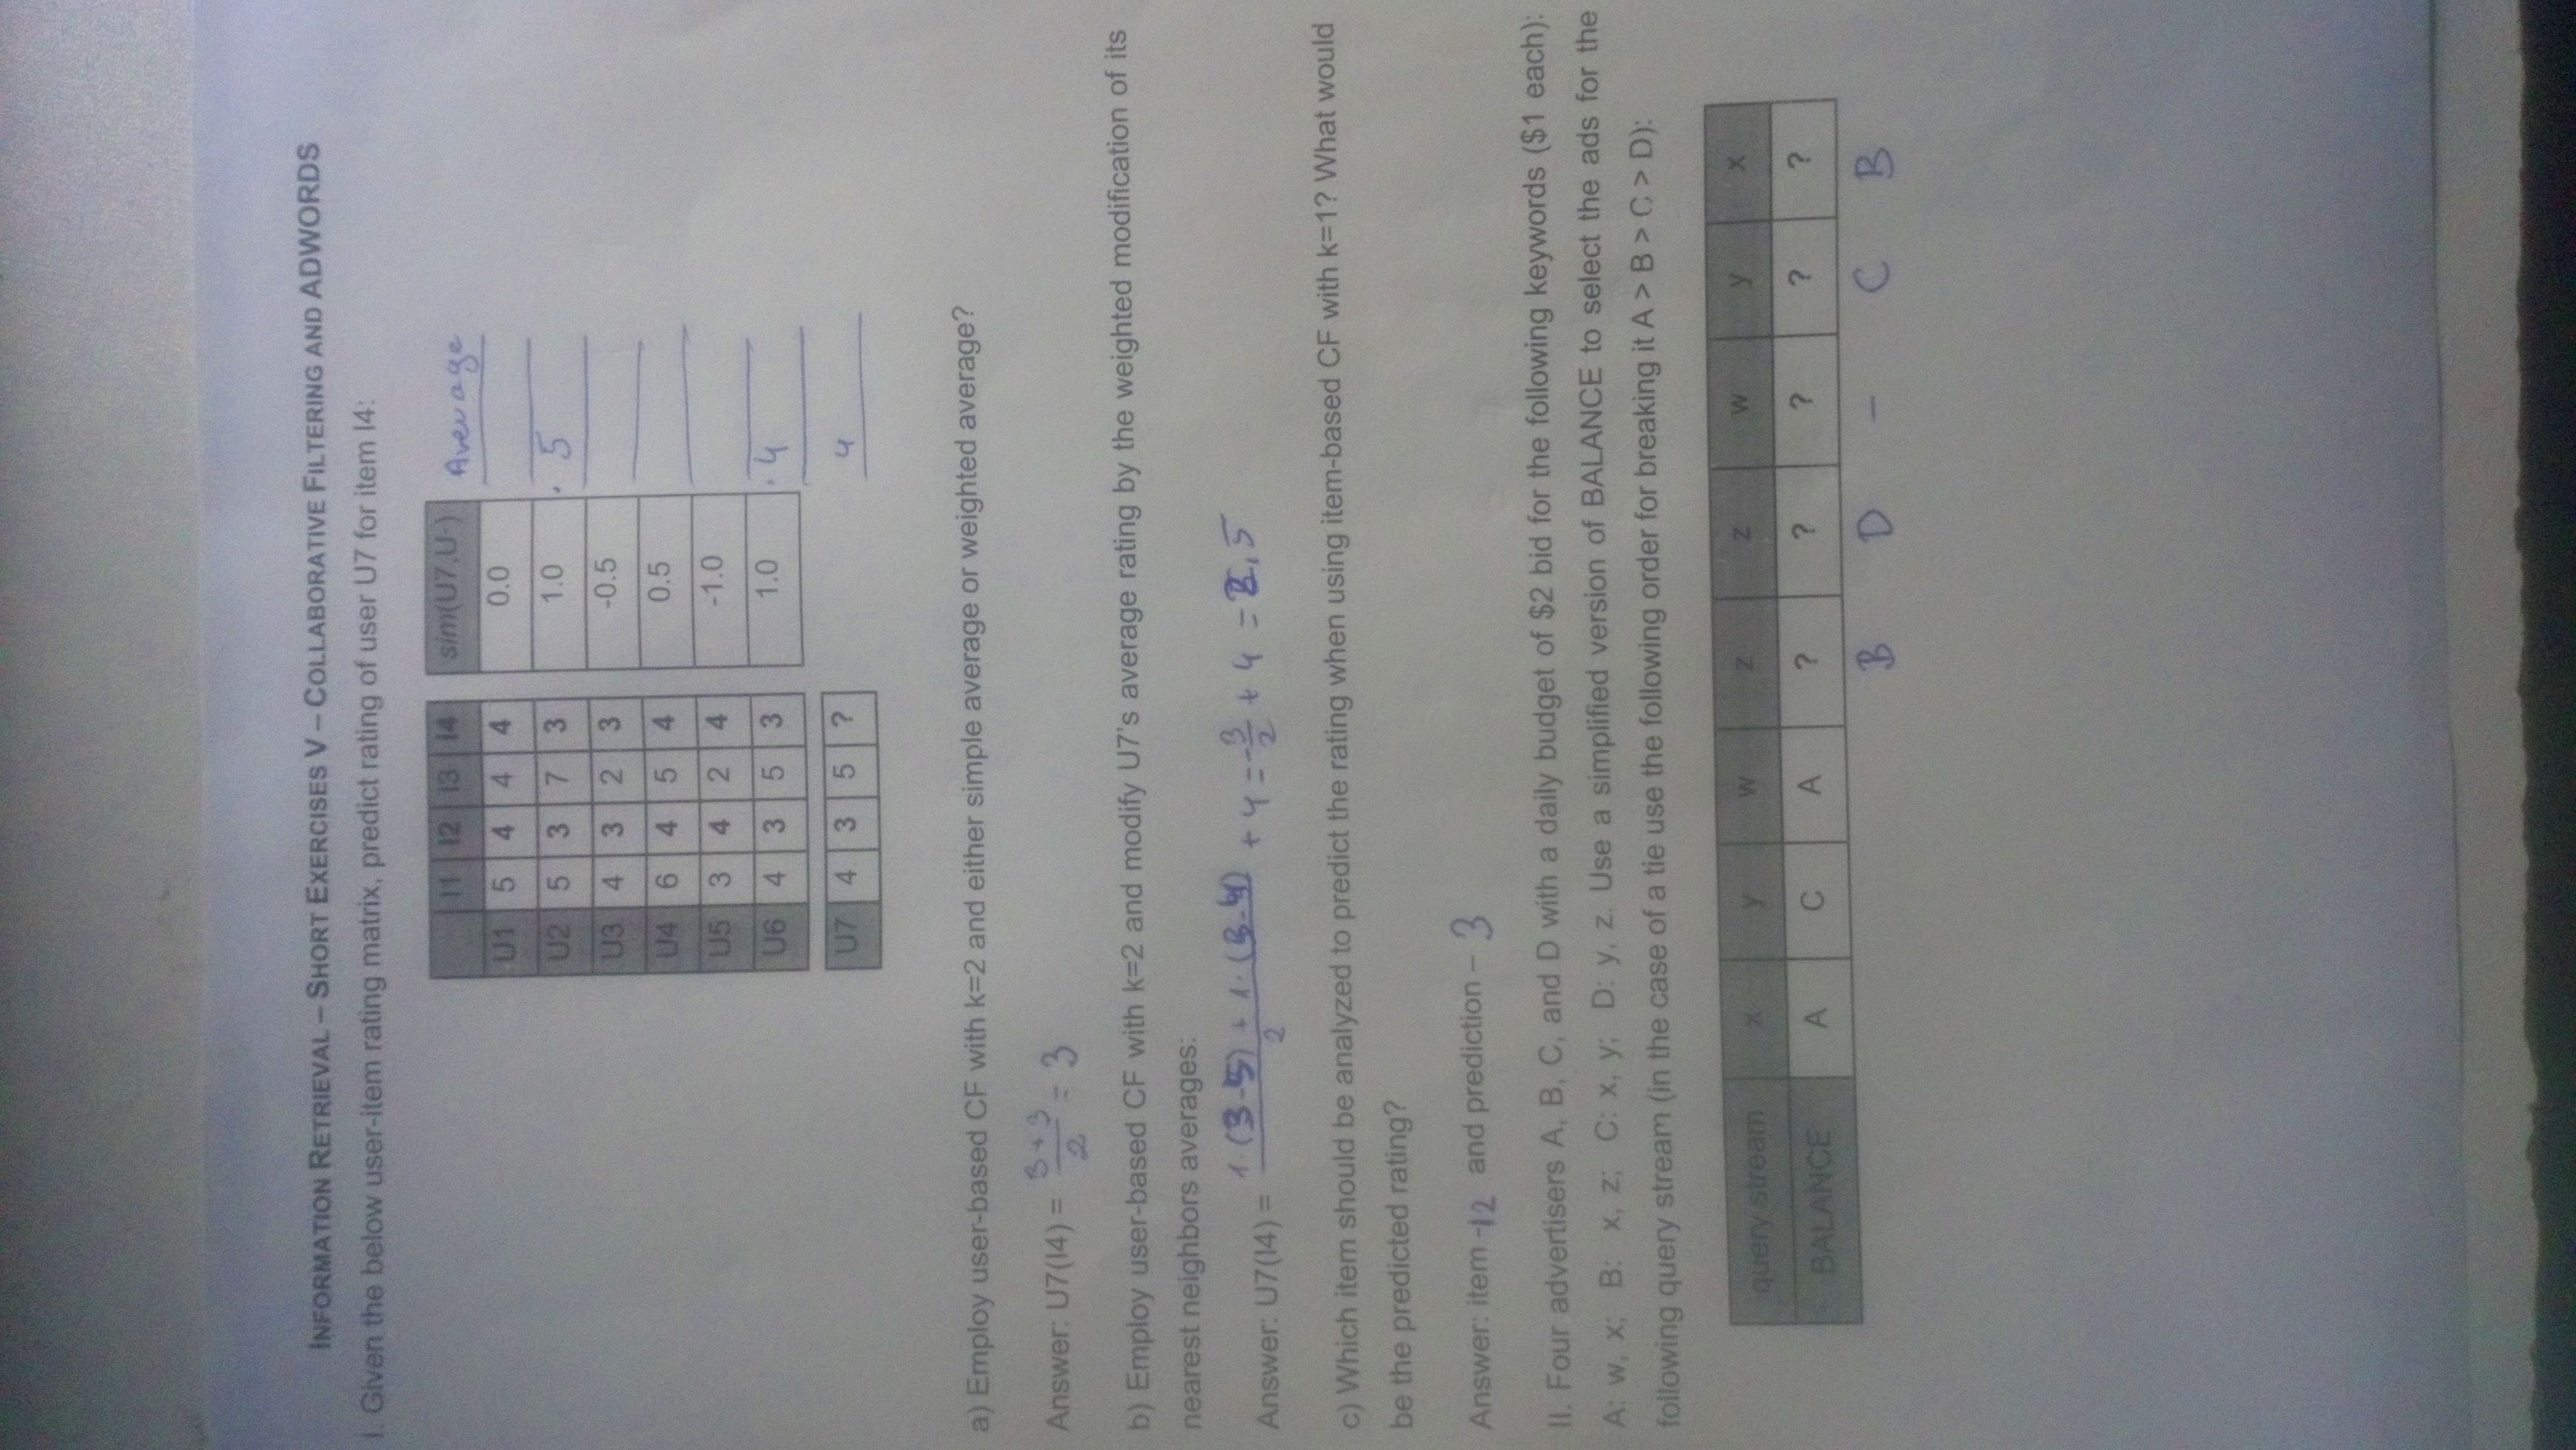 INFORMATION RETRIEVAL – SHORT EXERCISES V – COLLABORATIVE FILTERING AND ADWORDS
I. Given the below user-item rating matrix, predict rating of user U7 for item I4:
I1 I2 I3 I4 sim(U7,U·) Average
U1 5 4 4 4 0.0
U2 5 3 7 3 1.0 · 5
U3 4 3 2 3 -0.5
U4 6 4 5 4 0.5
U5 3 4 2 4 -1.0
U6 4 3 5 3 1.0 · 4
U7 4 3 5 ? 4
a) Employ user-based CF with k=2 and either simple average or weighted average?
Answer: U7(I4) = 3+3 / 2 = 3
b) Employ user-based CF with k=2 and modify U7's average rating by the weighted modification of its
nearest neighbors averages:
Answer: U7(I4) = 1·(3-5) + 1·(3-4) / 2 + 4 = -3/2 + 4 = 2,5
c) Which item should be analyzed to predict the rating when using item-based CF with k=1? What would
be the predicted rating?
Answer: item -I2 and prediction – 3
II. Four advertisers A, B, C, and D with a daily budget of $2 bid for the following keywords ($1 each):
A: w, x; B: x, z; C: x, y; D: y, z. Use a simplified version of BALANCE to select the ads for the
following query stream (in the case of a tie use the following order for breaking it A > B > C > D):
query stream x y w z z w y x
BALANCE A C A ? ? ? ? ?
B D – C B